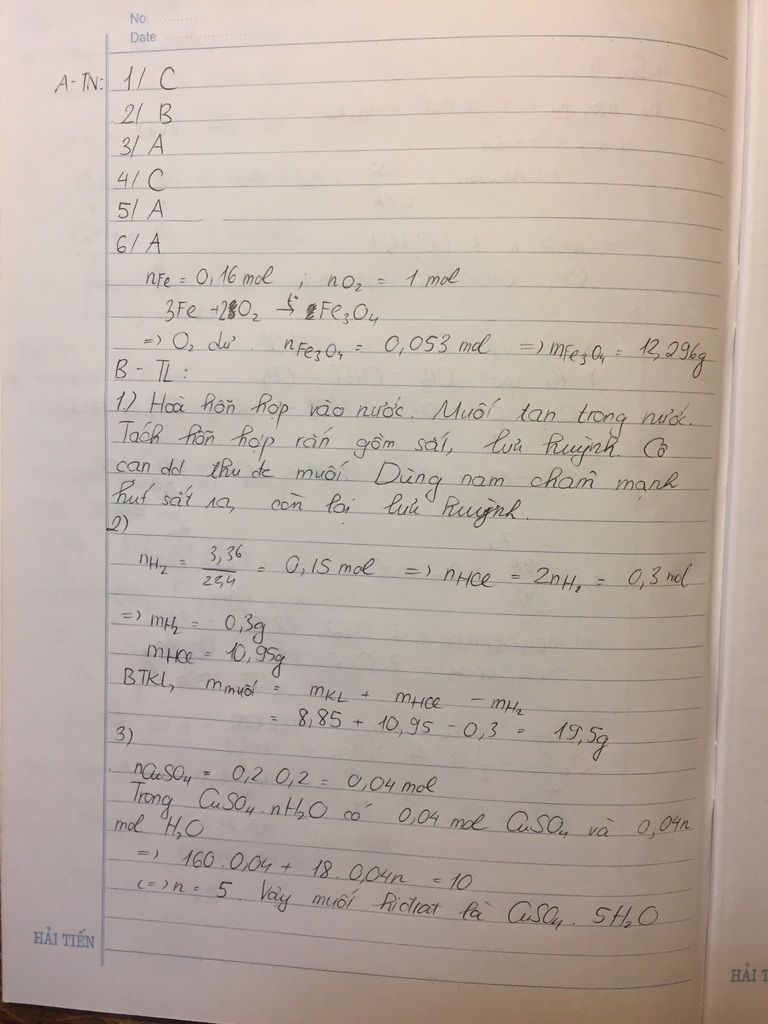 No. ............
Date .....................
A-TN: 1/ C
2/ B
3/ A
4/ C
5/ A
6/ A
nFe = 0,16 mol ; nO2 = 1 mol
3Fe + 2O2 t° → Fe3O4
=> O2 dư. nFe3O4 = 0,053 mol => mFe3O4 = 12,296g
B - TL:
1.) Hoà hỗn hợp vào nước. Muối tan trong nước.
Tách hỗn hợp rắn gồm sắt, lưu huỳnh. Cô
cạn dd thu đc muối. Dùng nam châm mạnh
hút sắt ra, còn lại lưu huỳnh.
2)
nH2 = 3,36/22,4 = 0,15 mol => nHCl = 2nH2 = 0,3 mol
=> mH2 = 0,3g
mHCl = 10,95g
BTKL, mmuối = mKL + mHCl - mH2
= 8,85 + 10,95 - 0,3 = 19,5g
3)
nCuSO4 = 0,2.0,2 = 0,04 mol
Trong CuSO4.nH2O có 0,04 mol CuSO4 và 0,04n
mol H2O
=> 160.0,04 + 18.0,04n = 10
<=> n = 5. Vậy muối hiđrat là CuSO4.5H2O
HẢI TIẾN
HẢI T